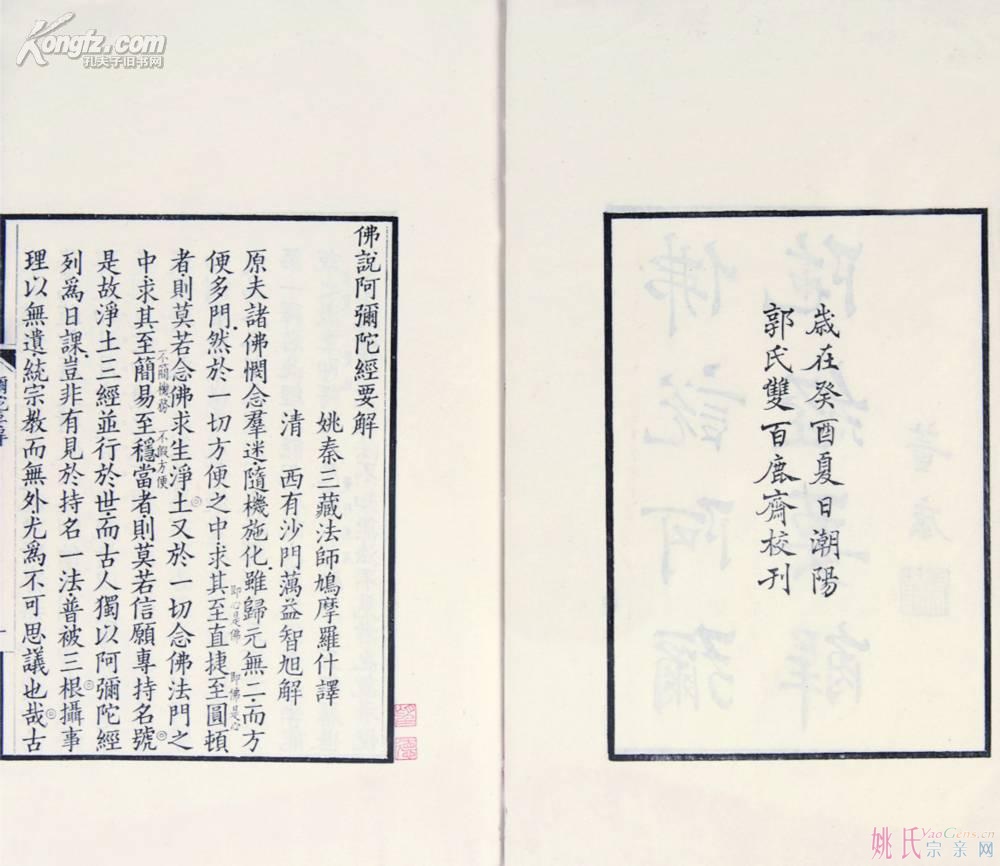 Kongfz.com
孔夫子旧书网
歲在癸酉夏日潮陽
郭氏雙百鹿齋校刊
佛說阿彌陀經要解
姚秦三藏法師鳩摩羅什譯
清 西有沙門蕅益智旭解
原夫諸佛憫念羣迷隨機施化雖歸元無二而方
便多門然於一切方便之中求其至直捷至圓頓
即心是佛 即佛是心
者則莫若念佛求生淨土又於一切念佛法門之
中求其至簡易至穩當者則莫若信願專持名號
不簡機務 不假方便
是故淨土三經並行於世而古人獨以阿彌陀經
列爲日課豈非有見於持名一法普被三根攝事
理以無遺統宗教而無外尤爲不可思議也哉古
姚氏 YaoGens.cn
宗亲网